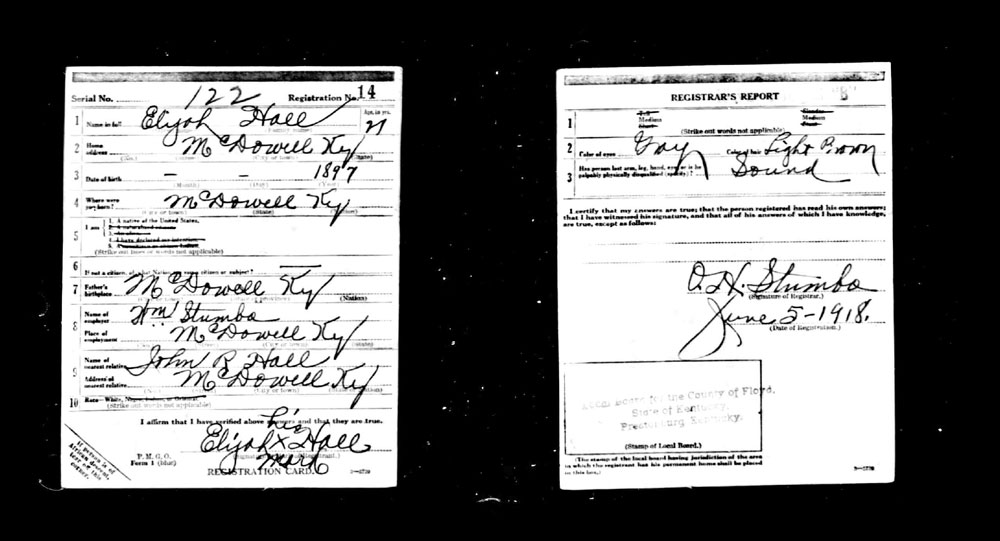 Serial No. 122 Registration No. 14
1 Name in full Elijah Hall Age, in yrs. 21
2 Home address McDowell Ky
3 Date of birth — — 1897
(Month) (Day) (Year)
4 Where were you born? McDowell Ky
(City or town) (State) (Nation)
5 I am 1. A native of the United States.
2. A naturalized citizen
3. An alien
4. I have declared my intention
(Strike out lines or words not applicable)
6 If not a citizen, of what Nation are you a citizen or subject? —
7 Father's birthplace McDowell Ky
(Nation)
8 Name of employer Wm Stumbo
Place of employment McDowell Ky
(State)
9 Name of nearest relative John R Hall
Address of nearest relative McDowell Ky
10 Race—White, Negro, Indian, or Oriental
(Strike out words not applicable)
I affirm that I have verified above answers and that they are true.
his
Elijah X Hall
mark
P. M. G. O.
Form 1 (blue)
REGISTRATION CARD.
If person is of African descent, tear off this corner.
REGISTRAR'S REPORT
1 Tall Medium Short Slender Medium Stout
(Strike out words not applicable)
2 Color of eyes Gray Color of hair Light Brown
3 Has person lost arm, leg, hand, eye, or is he palpably physically disqualified (specify)? Sound
I certify that my answers are true; that the person registered has read his own answers;
that I have witnessed his signature, and that all of his answers of which I have knowledge,
are true, except as follows:
O. H. Stumbo
(Signature of Registrar.)
June 5-1918.
(Date of Registration.)
Local Board for the County of Floyd,
State of Kentucky,
Prestonburg Kentucky.
(Stamp of Local Board.)
(The stamp of the local board having jurisdiction of the area
in which the registrant has his permanent home shall be placed
in this box.)